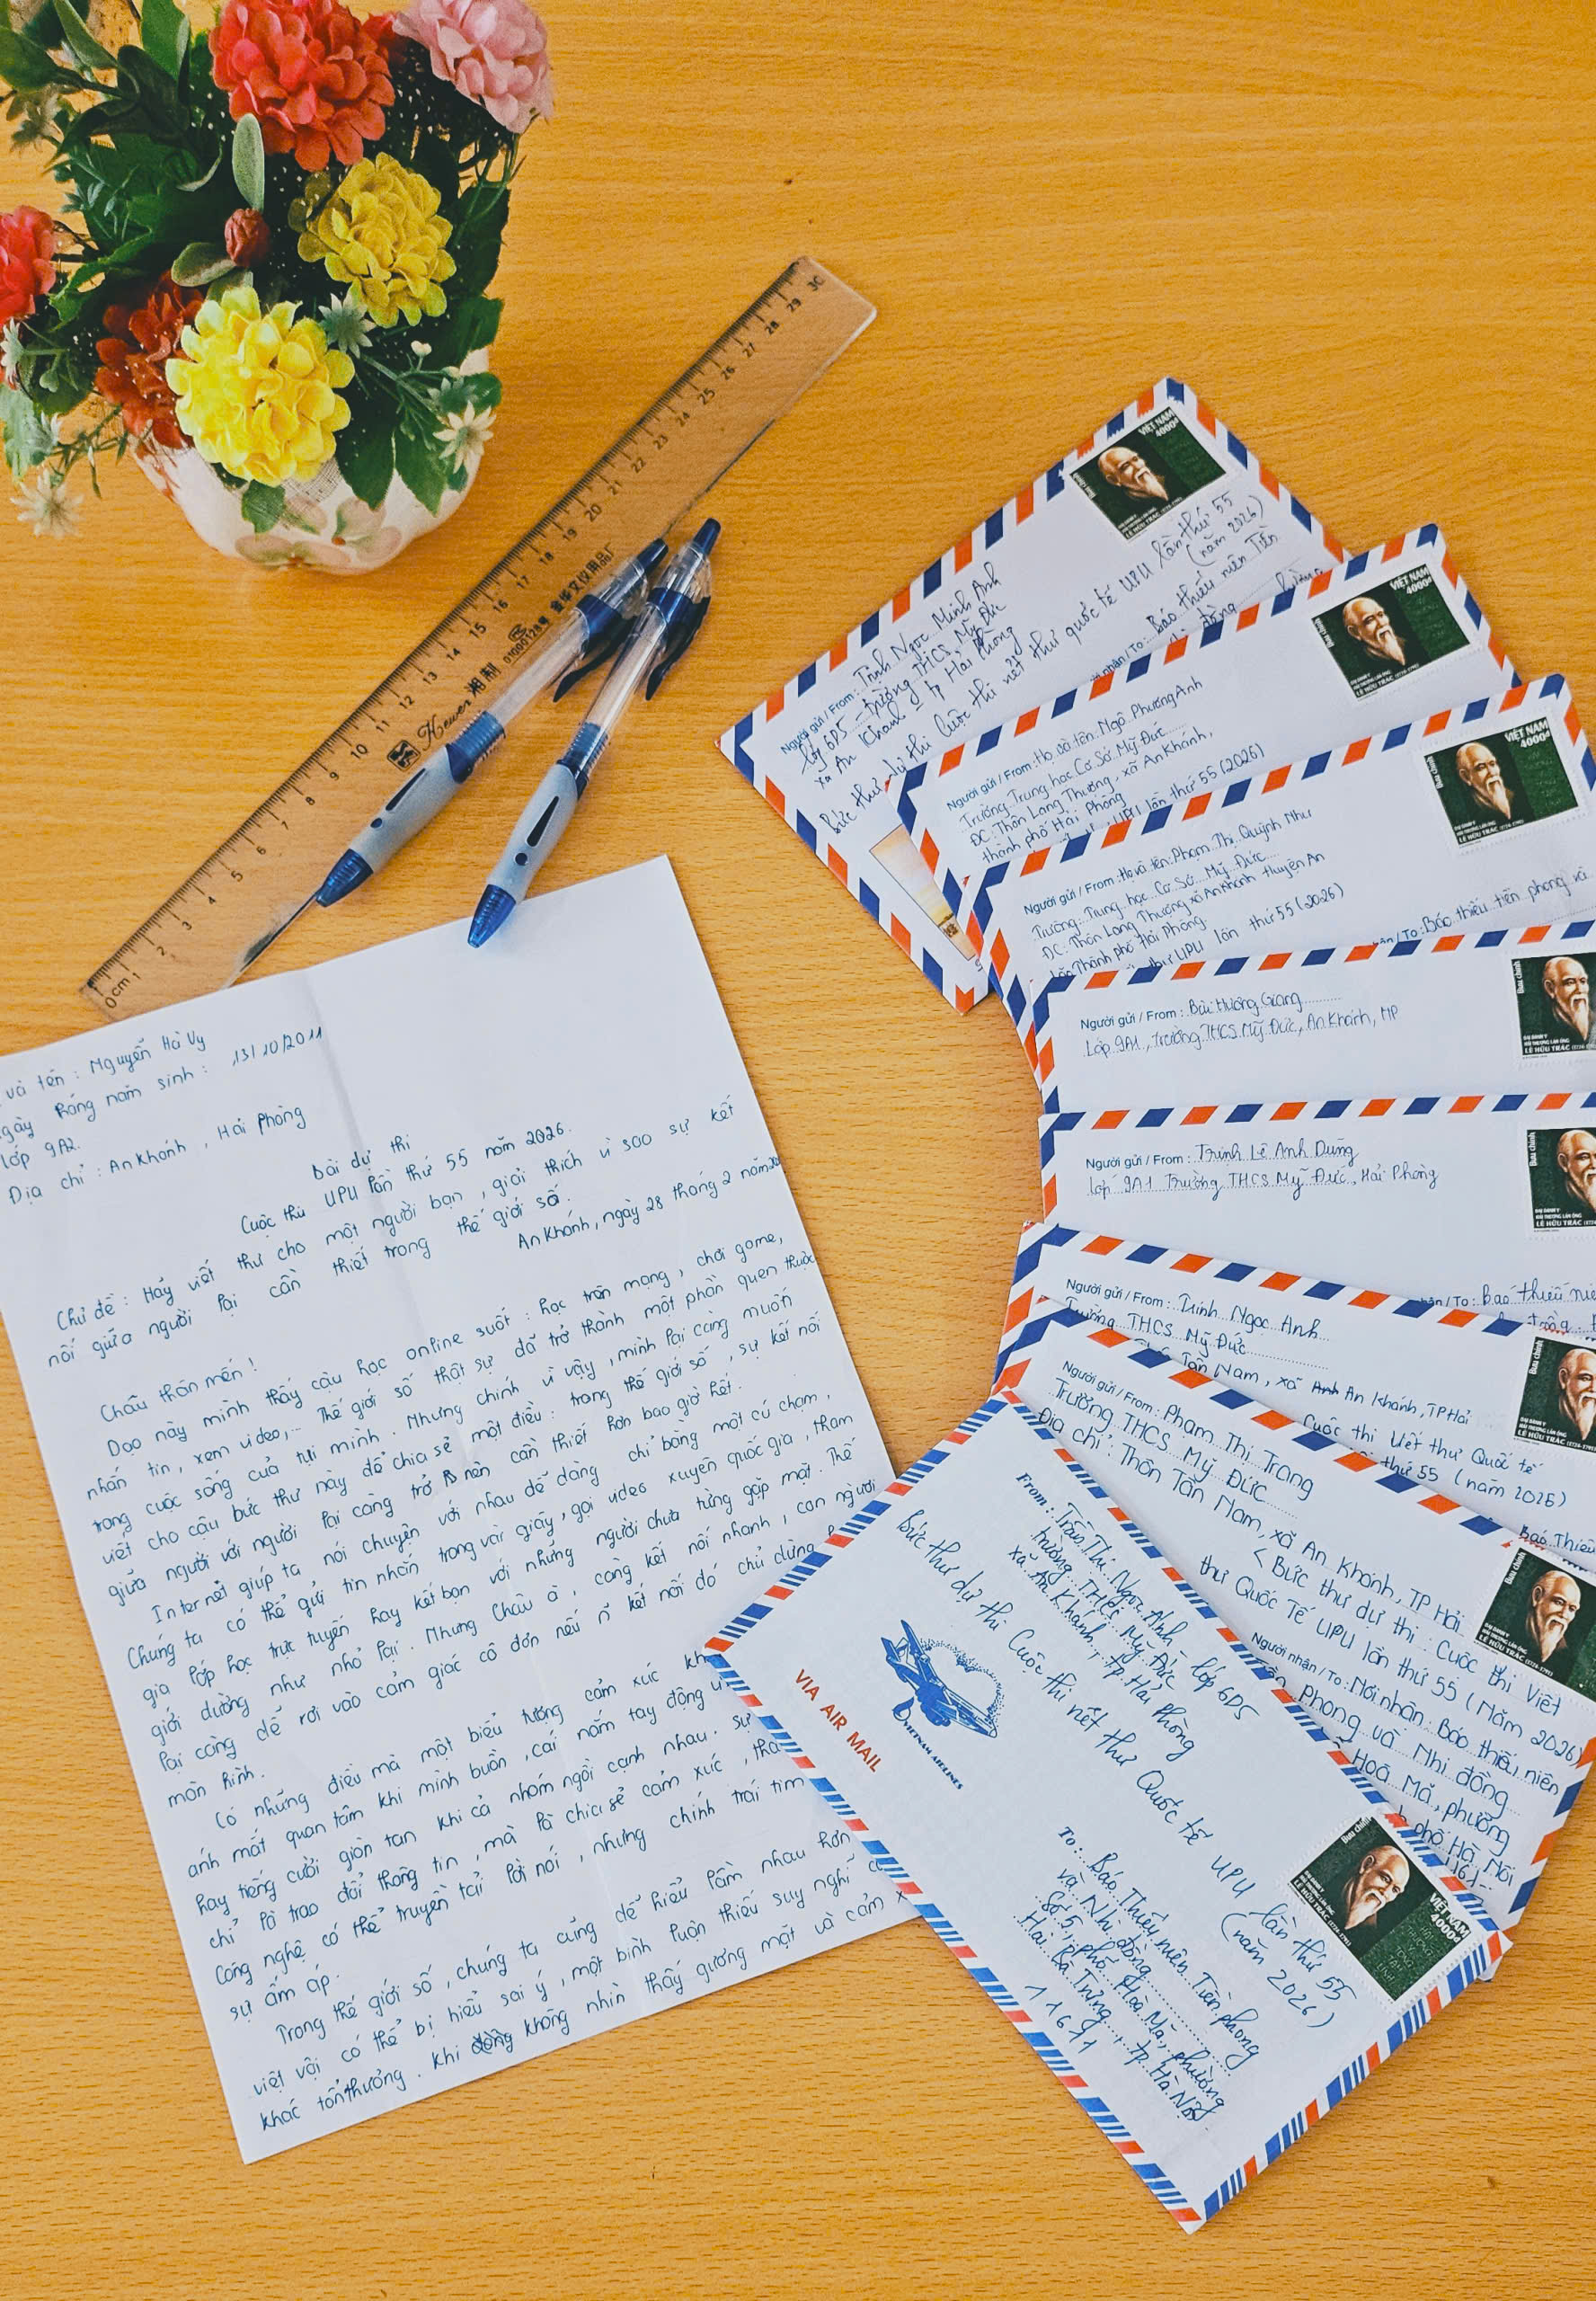 và tên : Nguyễn Hà Vy
ngày tháng năm sinh : 13/10/2011
lớp 9A2.
Địa chỉ : An Khánh , Hải Phòng
bài dự thi
Cuộc thi UPU lần thứ 55 năm 2026.
Chủ đề : Hãy viết thư cho một người bạn , giải thích vì sao sự kết
nối giữa người lại cần thiết trong thế giới số.
An Khánh, ngày 28 tháng 2 năm
Châu thân mến !
Dạo này mình thấy cậu học online suốt : học trên mạng , chơi game,
nhắn tin , xem video,... Thế giới số thật sự đã trở thành một phần quen thuộc
trong cuộc sống của tụi mình . Nhưng chính vì vậy , mình lại càng muốn
viết cho cậu bức thư này để chia sẻ một điều : trong thế giới số , sự kết nối
giữa người với người lại càng trở nên cần thiết hơn bao giờ hết.
Internet giúp ta nói chuyện với nhau dễ dàng chỉ bằng một cú chạm ,
Chúng ta có thể gửi tin nhắn trong vài giây, gọi video xuyên quốc gia , tham
gia lớp học trực tuyến hay kết bạn với những người chưa từng gặp mặt . Thế
giới dường như nhỏ lại . Nhưng Châu à , càng kết nối nhanh , con người
lại càng dễ rơi vào cảm giác cô đơn nếu kết nối đó chỉ dừng
màn hình.
Có những điều mà một biểu tượng cảm xúc kh
ánh mắt quan tâm khi mình buồn , cái nắm tay động
hay tiếng cười giòn tan khi cả nhóm ngồi cạnh nhau . sự
chỉ là trao đổi thông tin , mà là chia sẻ cảm xúc , thấ
Công nghệ có thể truyền tải lời nói , nhưng chính trái tim
sự ấm áp .
Trong thế giới số , chúng ta cũng dễ hiểu lầm nhau hơn
viết vội có thể bị hiểu sai ý , một bình luận thiếu suy nghĩ c
khác tổn thương . Khi không nhìn thấy gương mặt và cảm x
0cm 1 2 3 4 5 6 7 8 9 10 11 12 13 14 15 16 17 18 19 20 21 22 23 24 25 26 27 28 29 30
Hewen
VIỆT NAM
4000đ
Bưu chính
ĐẠI DANH Y
HẢI THƯỢNG LÃN ÔNG
LÊ HỮU TRÁC (1724-1791)
Người gửi / From : Trịnh Ngọc Minh Anh
lớp 6D5 - trường THCS Mỹ Đức
xã An Khánh - tp Hải Phòng
Bức thư dự thi Cuộc thi viết thư quốc tế UPU lần thứ 55
(năm 2026)
nhận / To : Báo thiếu niên Tiền
VIỆT NAM
4000đ
Bưu chính
ĐẠI DANH Y
HẢI THƯỢNG LÃN ÔNG
LÊ HỮU TRÁC (1724-1791)
Người gửi / From : Họ và tên: Ngô Phương Anh
Trường: Trung học Cơ Sở Mỹ Đức
ĐC: Thôn Lang Thượng, xã An Khánh,
thành phố Hải Phòng
UPU lần thứ 55 (2026)
VIỆT NAM
4000đ
Bưu chính
ĐẠI DANH Y
HẢI THƯỢNG LÃN ÔNG
LÊ HỮU TRÁC (1724-1791)
Người gửi / From : Họ và tên: Phạm Thị Quỳnh Như
Trường: Trung học Cơ Sở Mỹ Đức
ĐC: Thôn Lang Thượng xã An Khánh huyện An
Lão Thành phố Hải Phòng.
thư UPU lần thứ 55 (2026)
nhận / To : Báo thiếu tiên phong và
Bưu chính
ĐẠI DANH Y
HẢI THƯỢNG LÃN ÔNG
LÊ HỮU TRÁC (1724
Người gửi / From : Bùi Hương Giang
Lớp 9A1 , trường THCS Mỹ Đức, An Khánh, HP
Bưu chính
ĐẠI DANH Y
HẢI THƯỢNG LÃN ÔNG
LÊ HỮU TRÁC (1724
Người gửi / From : Trịnh Lê Anh Dũng
lớp 9A1 Trường THCS Mỹ Đức, Hải Phòng
Người gửi / From : Trịnh Ngọc Anh
Trường THCS Mỹ Đức
Tân Nam, xã An Khánh, TP Hải
Cuộc thi Viết thư Quốc tế
thứ 55 (năm 2026)
nhận / To : Báo thiếu niê
Bưu chính
ĐẠI DANH Y
HẢI THƯỢNG LÃN ÔNG
LÊ HỮU TRÁC (1724
Người gửi / From : Phạm Thị Trang
Trường THCS Mỹ Đức
Địa chỉ : Thôn Tân Nam, xã An Khánh, TP Hải
< Bức thư dự thi : Cuộc thi Viết
thư Quốc Tế UPU lần thứ 55 (Năm 2026)
Người nhận / To : Nơi nhận : Báo thiếu niên
Phong và Nhi đồng
Hoà Mã, phường
phố Hà Nội
Báo Thiếu
Bưu chính
ĐẠI DANH Y
HẢI THƯỢNG LÃN ÔNG
LÊ HỮU TRÁC (1724-1791)
From : Trần Thị Ngọc Ánh - lớp 6D5
trường THCS Mỹ Đức
xã An Khánh, tp Hải Phòng
Bức thư dự thi Cuộc thi viết thư Quốc tế UPU lần thứ 55
(năm 2026)
VIETNAM AIRLINES
VIA AIR MAIL
To : Báo Thiếu niên Tiền phong
và Nhi đồng
Số 5, phố Hoà Mã, phường
Hai Bà Trưng , tp. Hà Nội
11611
Bưu chính
VIỆT NAM
4000đ